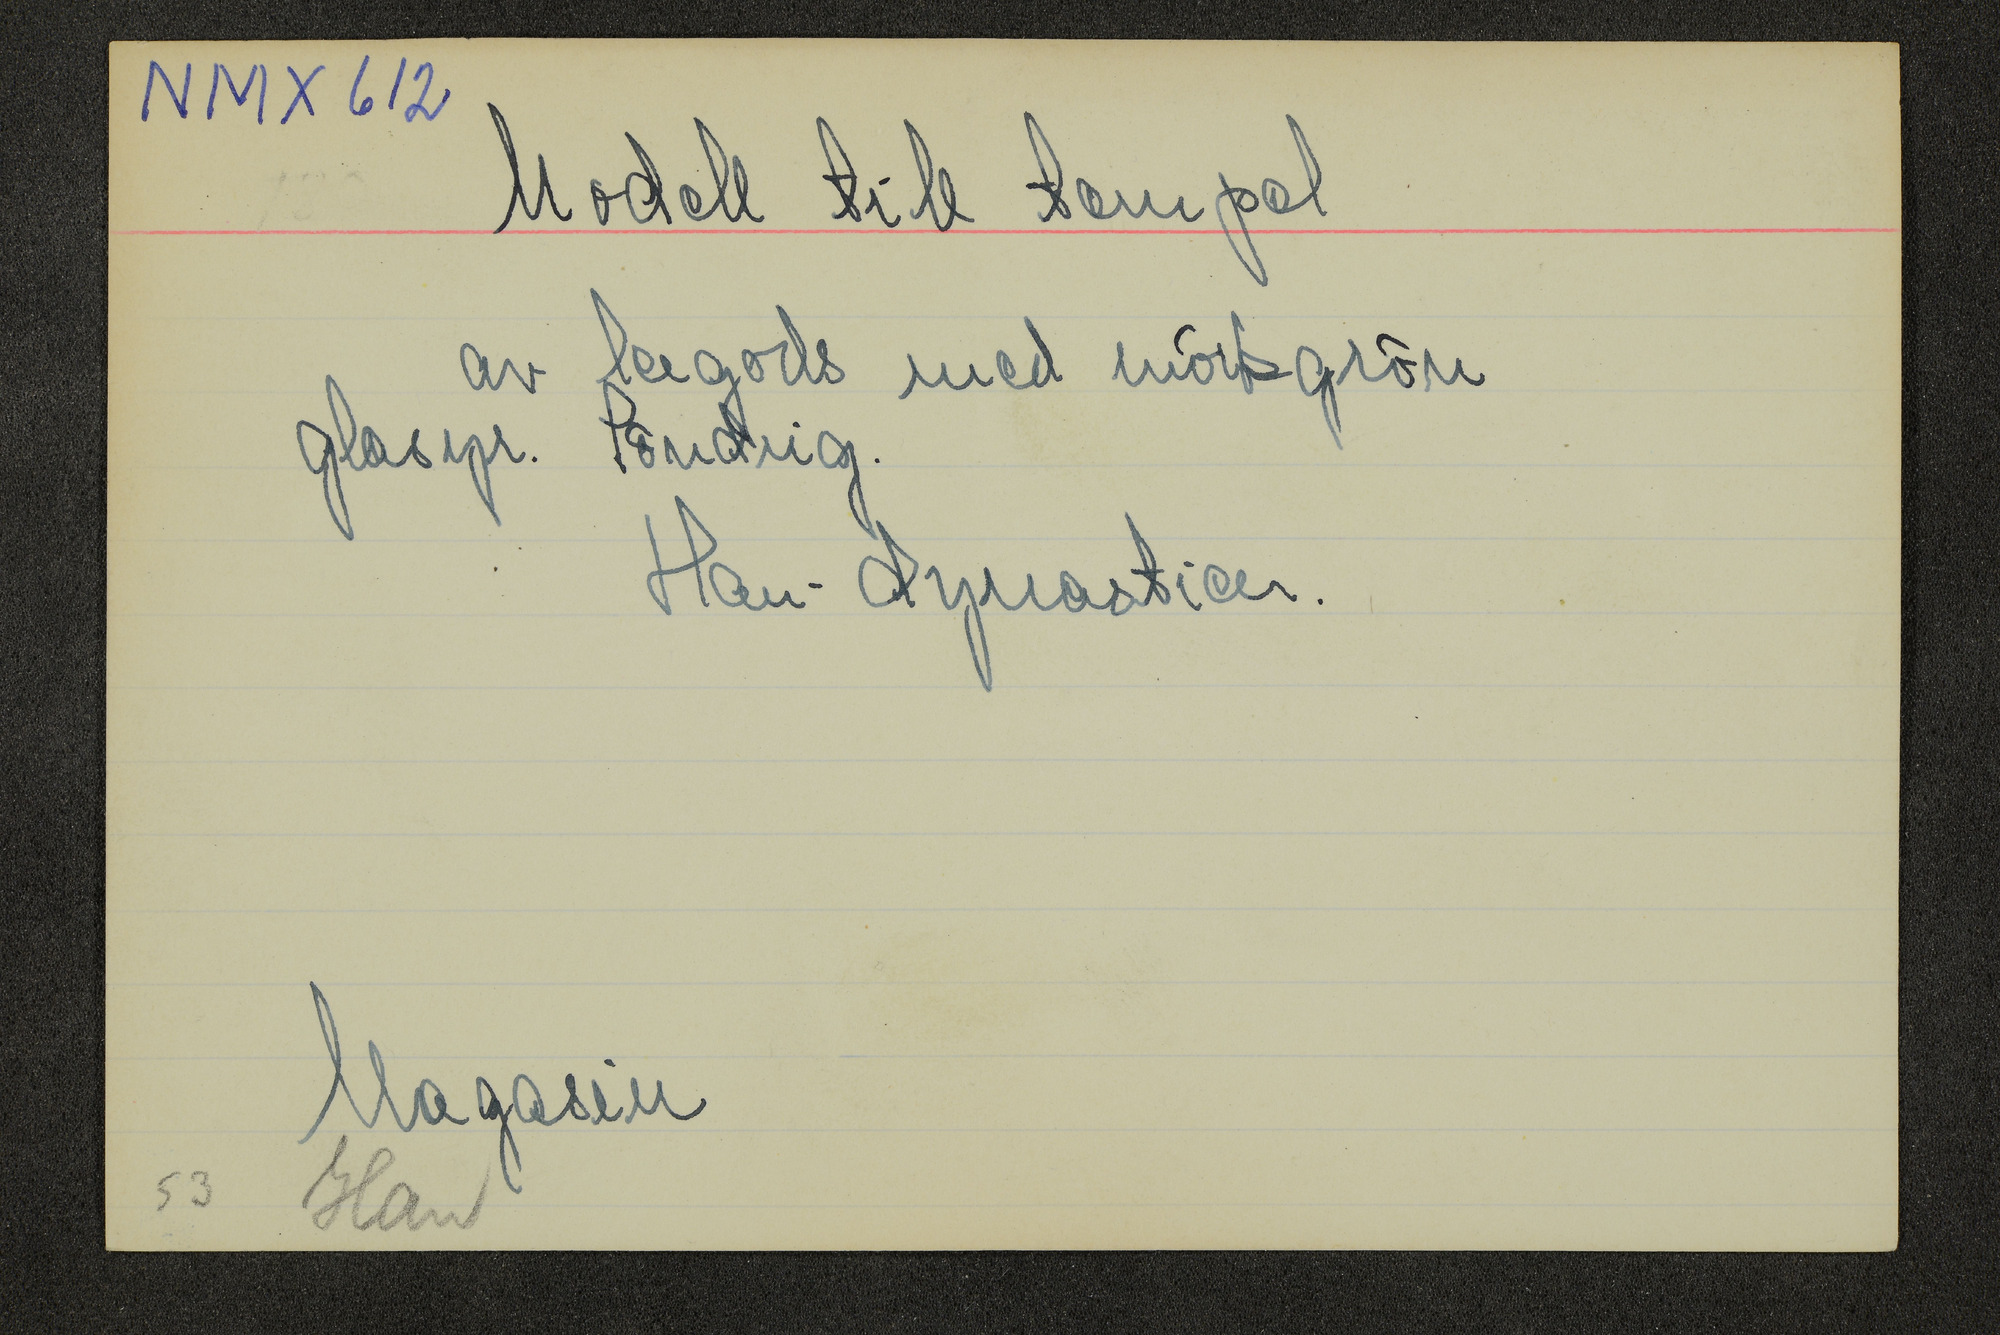 NMX 612
Modell till tempel
av lergods med mörkgrön
glasyr. Rundrig.
Han-dynastien.
Magasin
53 Han